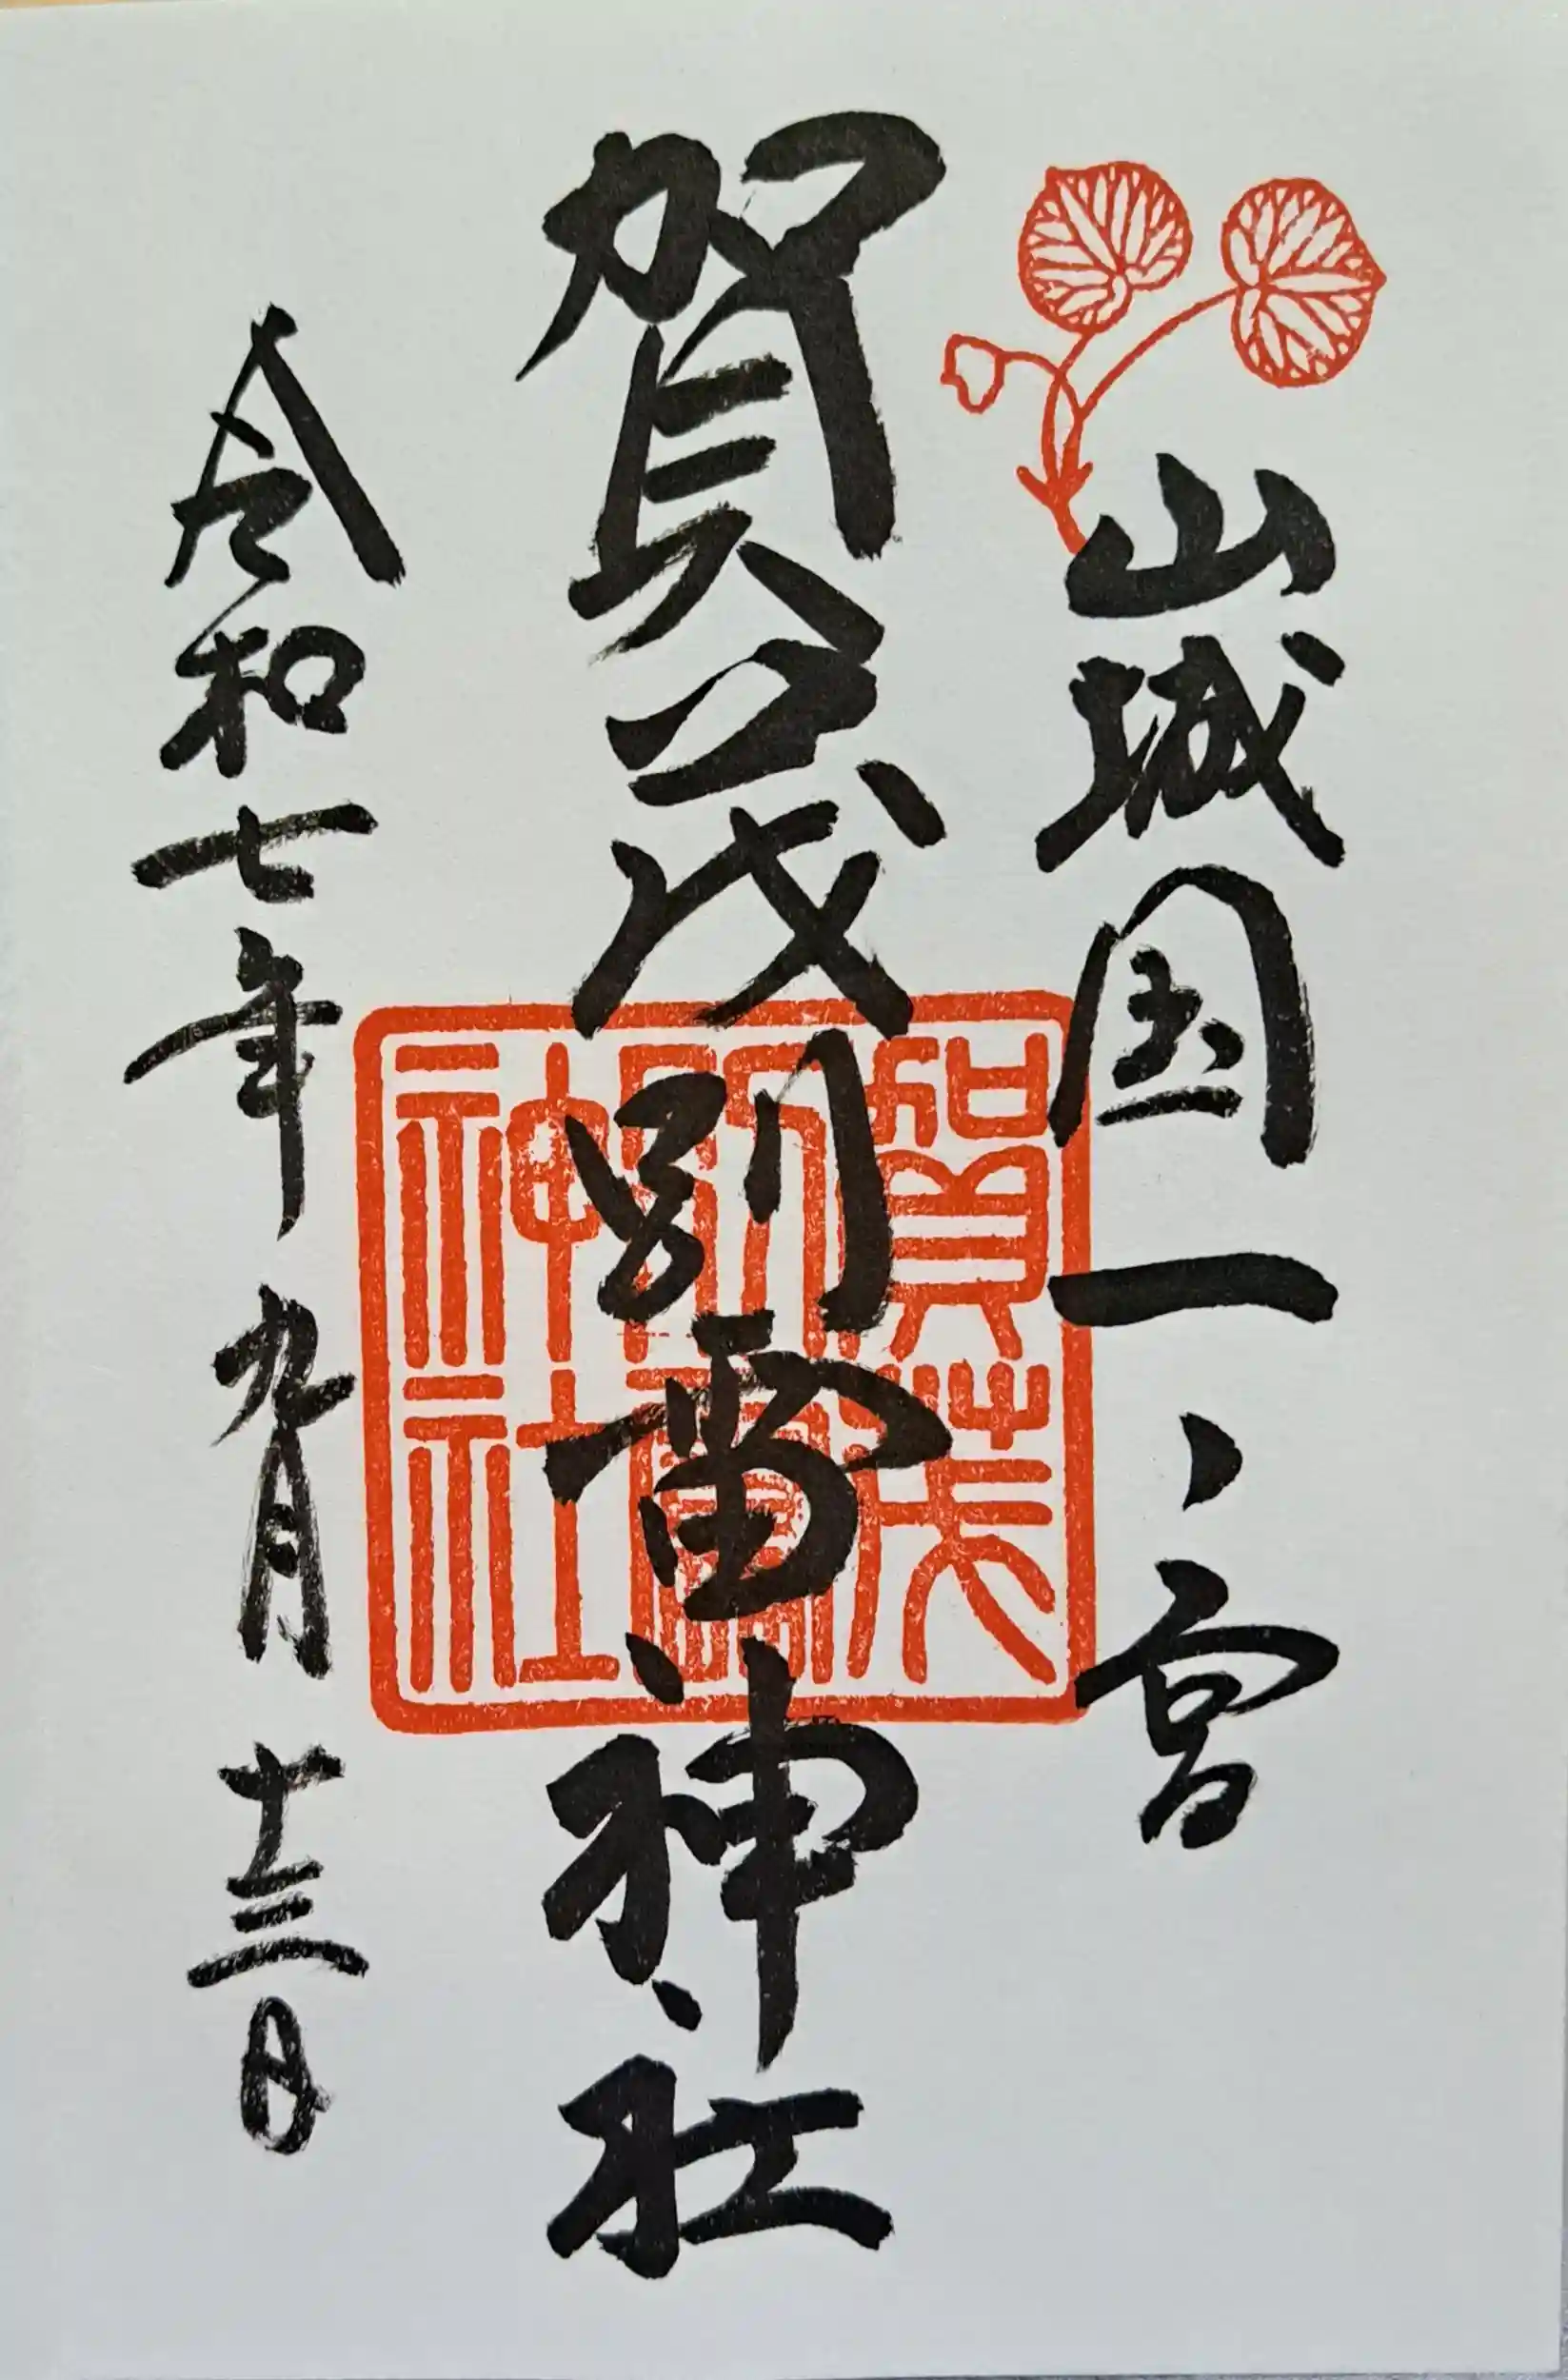 山城国一、宮
賀茂別雷神社
賀茂
別雷
神社
令和七年九月十三日